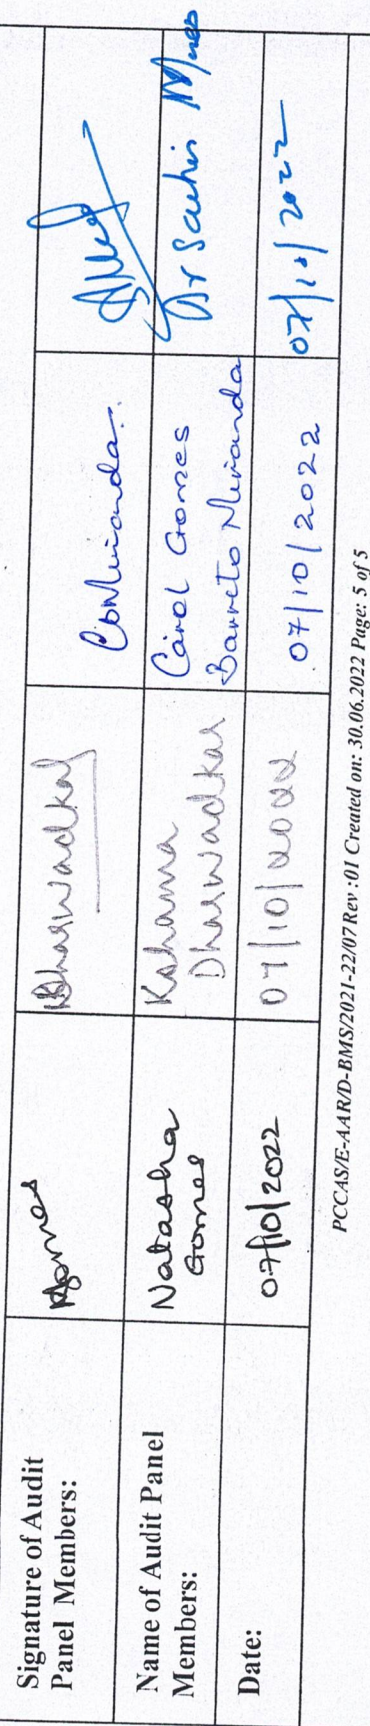 Signature of Audit
Panel Members:
Gomes
Dharwadkar
CGMiranda.
Name of Audit Panel
Members:
Natasha
Gomes
Kshama
Dharwadkar
Carol Gomes
Barreto Miranda
Dr Sachin
Date:
07/10/2022
07/10/2022
07/10/2022
07/10/2022
PCCAS/E-AAR/D-BMS/2021-22/07 Rev :01 Created on: 30.06.2022 Page: 5 of 5